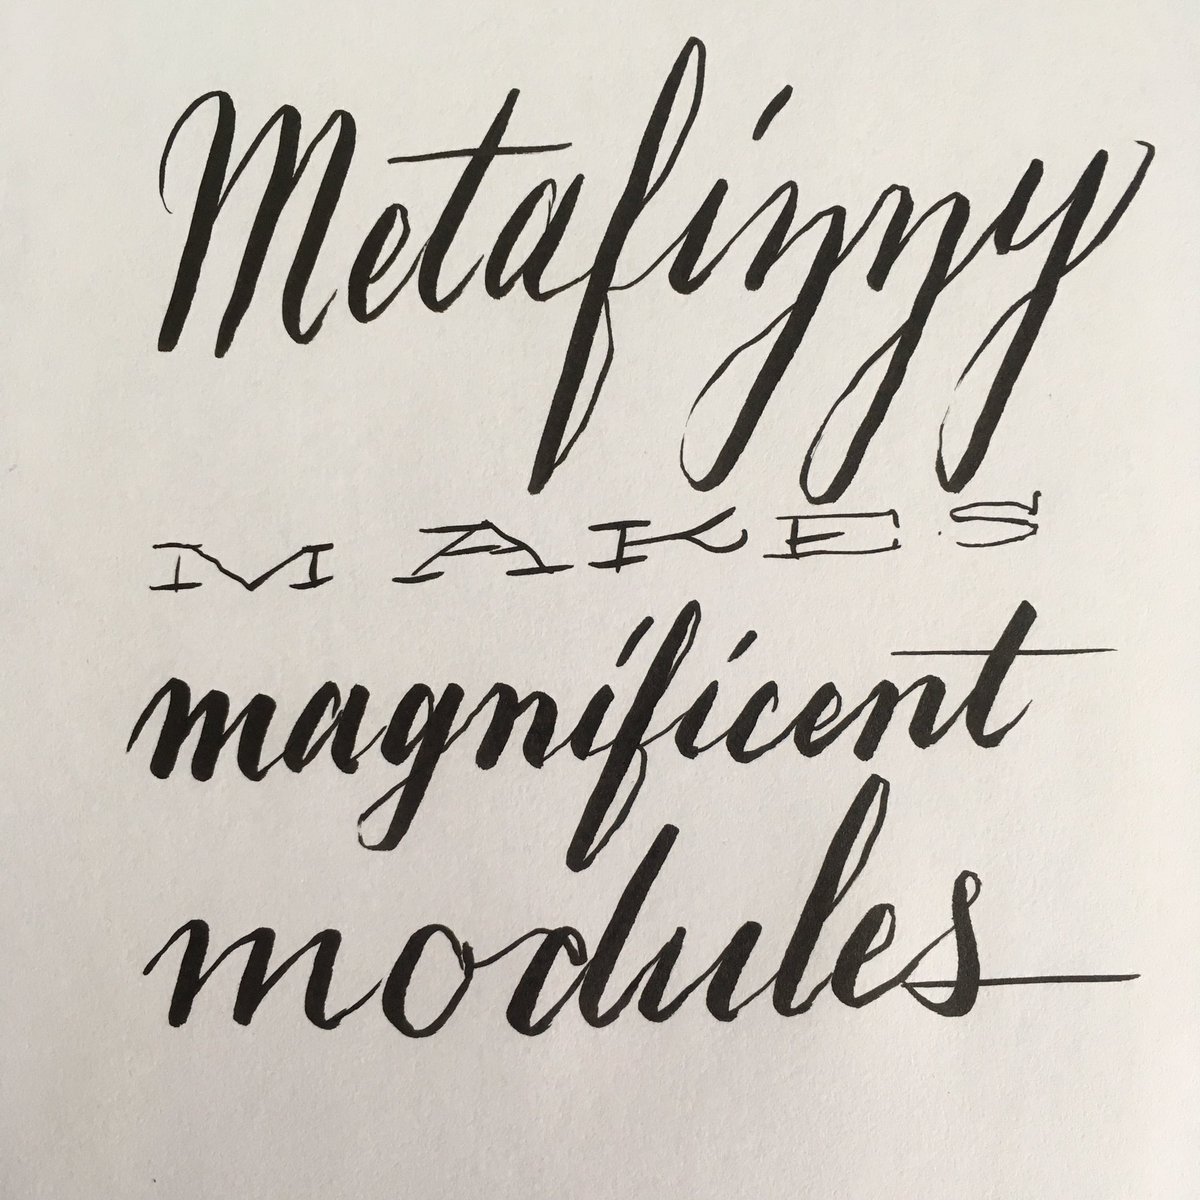 Metafizzy
MAKES
magnificent
modules